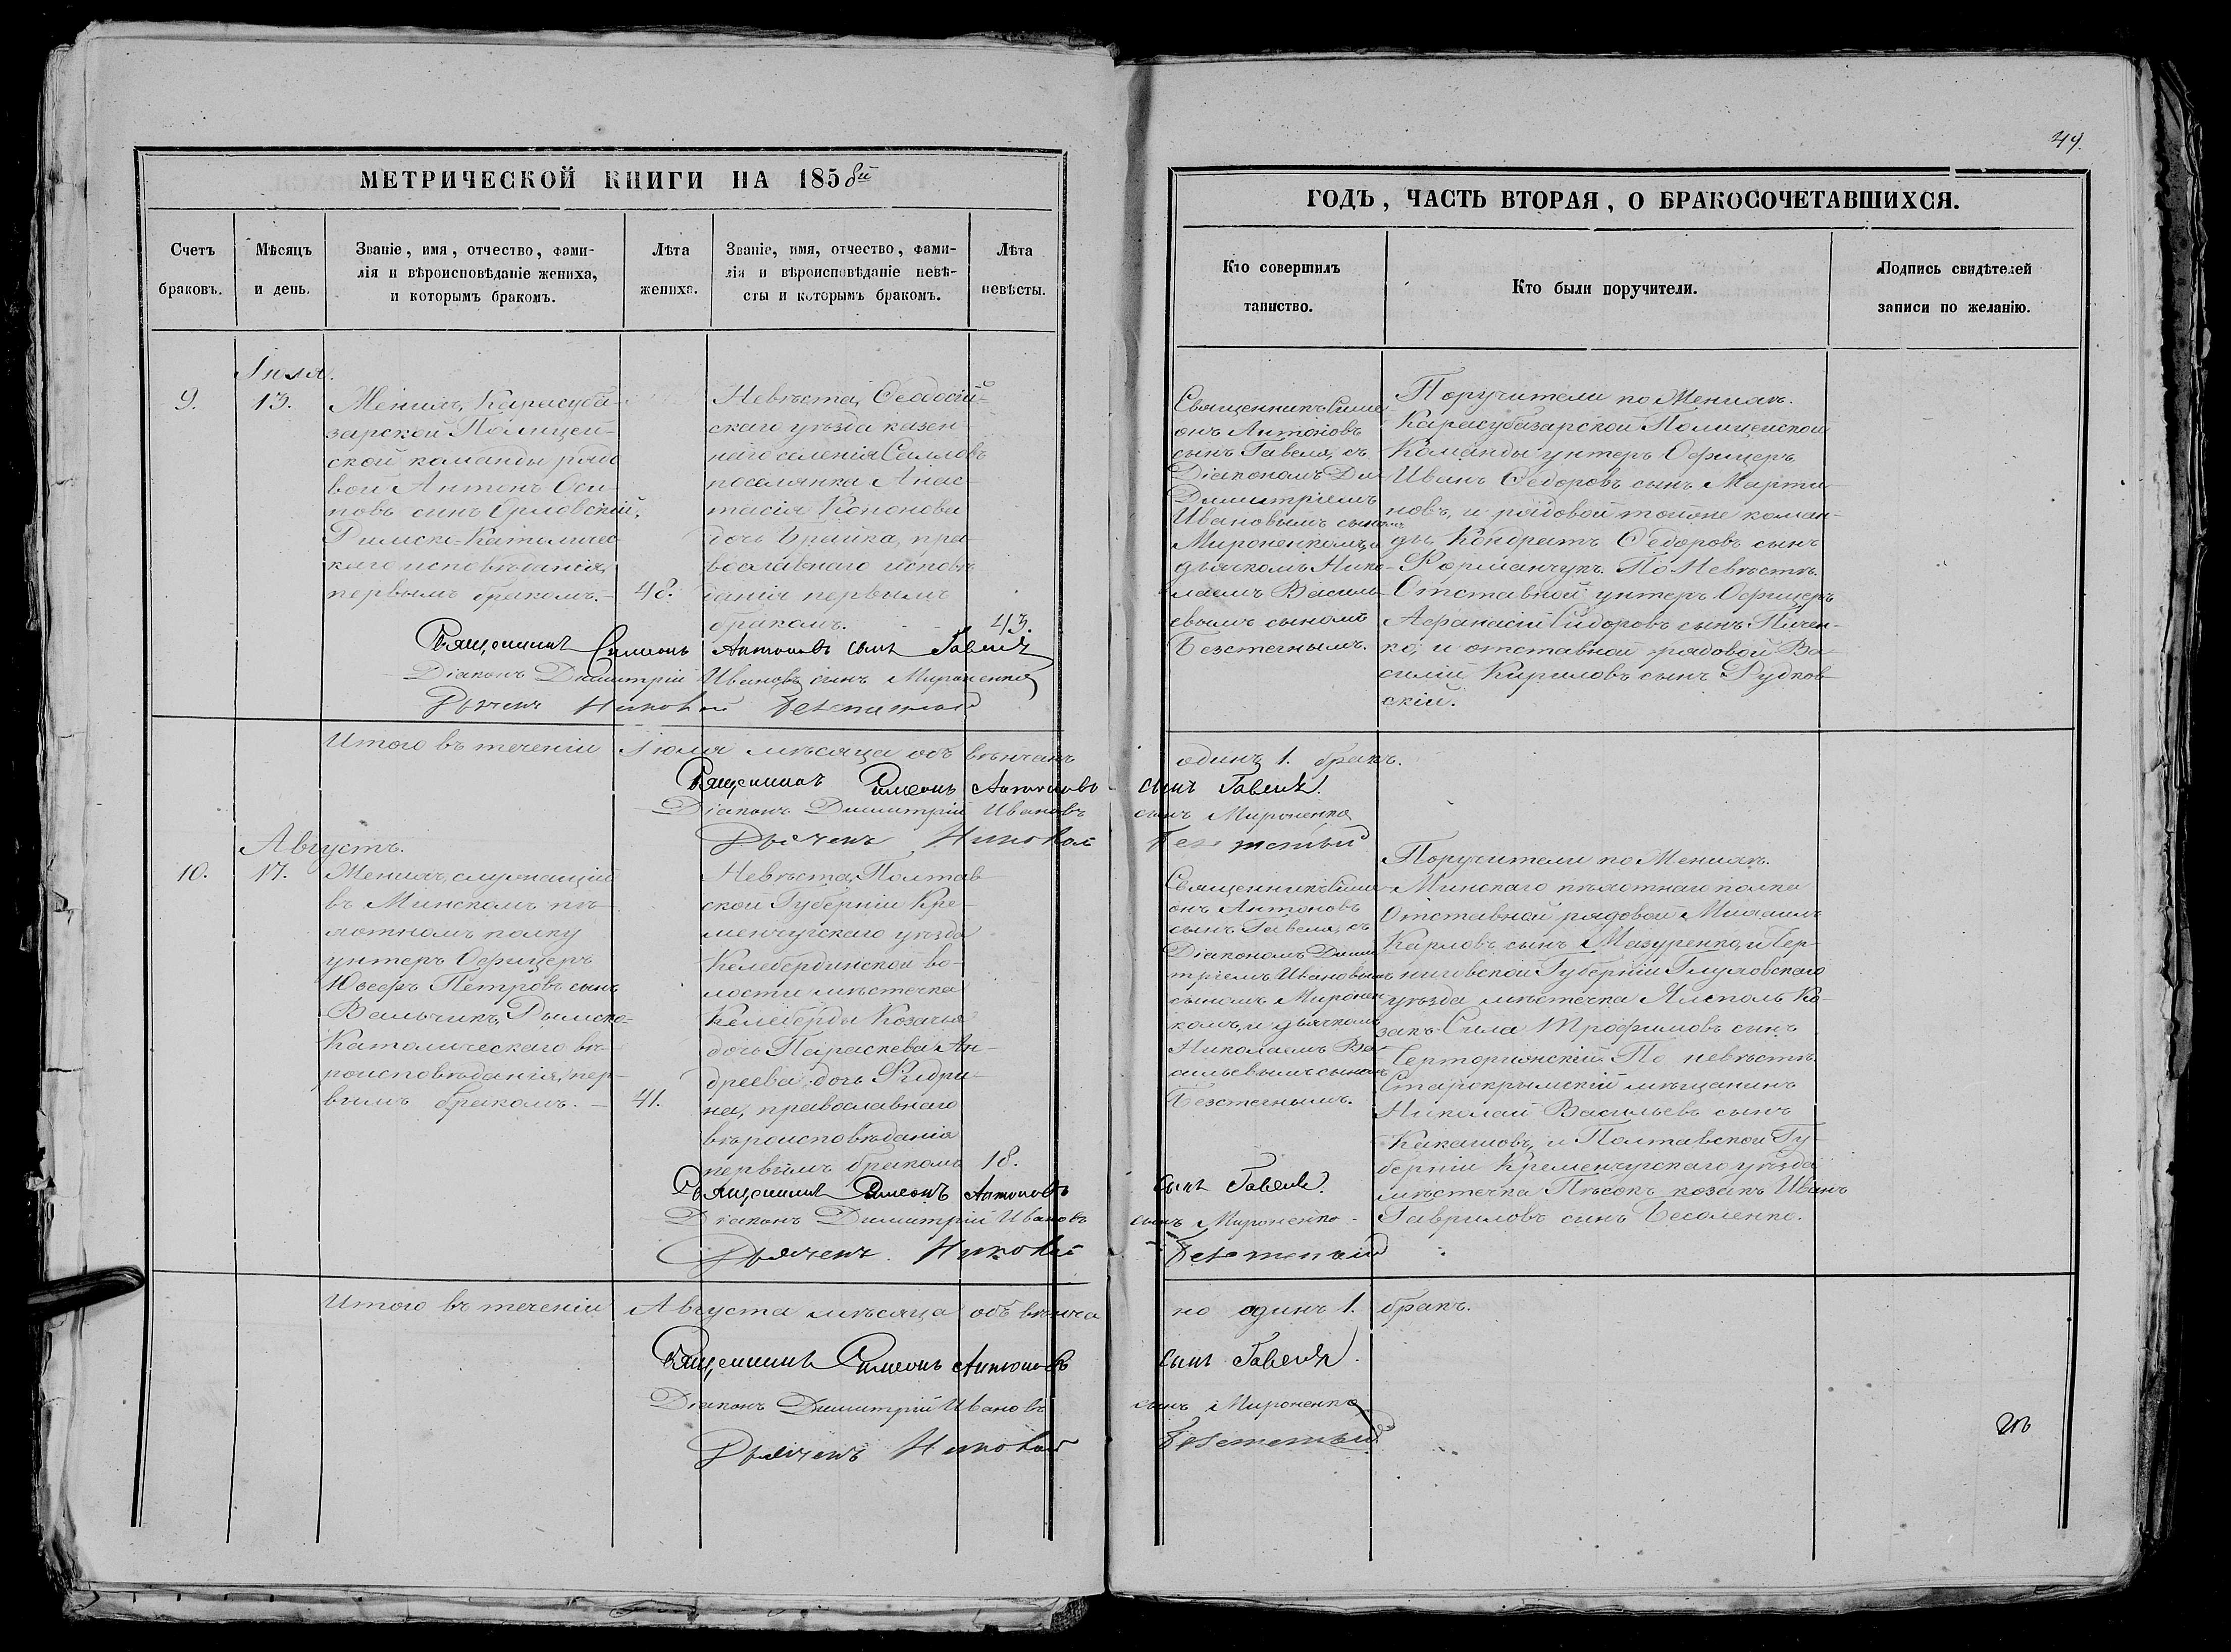 44.
МЕТРИЧЕСКОЙ КНИГИ НА 1858й
ГОДЪ, ЧАСТЬ ВТОРАЯ, О БРАКОСОЧЕТАВШИХСЯ.
Счетъ
браковъ.
Мѣсяцъ
и день.
Званіе, имя, отчество, фами-
лія и вѣроисповѣданіе жениха,
и которымъ бракомъ.
Лѣта
жениха.
Званіе, имя, отчество, фами-
лія и вѣроисповѣданіе невѣ-
сты и которымъ бракомъ.
Лѣта
невѣсты.
Кто совершилъ
таинство.
Кто были поручители.
Подпись свидѣтелей
записи по желанію.
9.
13.
Женихъ, Карасуба-
зарской Полицей-
ской команды рядо
вой Антонъ Оси-
повъ сынъ Орловскій,
Римско-Католичес-
каго исповѣданія,
первымъ бракомъ.-
48.
Невѣста, Ѳеодосій-
скаго уѣзда казен-
наго селенія Саловъ
поселянка Анас-
тасія Кононова
дочь Брайка, пра-
вославнаго исповѣ
данія первымъ
бракомъ.
43.
Священникъ Симе-
онъ Антоновъ
сынъ Гавеля, съ
Діакономъ Ди-
Димитріемъ
Ивановымъ сыномъ
Мироненкомъ, и
дьячкомъ Нико-
лаемъ Василь-
евымъ сыномъ
Безстечнымъ.
Поручители по Женихѣ.
Карасубазарской Полицейской
Команды унтеръ Офицеръ
Иванъ Ѳедоровъ сынъ Марти-
новъ, и рядовой тойже коман-
ды, Кондратъ Ѳедоровъ сынъ
Форманчукъ. По Невѣстѣ.
Отставной унтеръ Офицеръ
Афанасій Сидоровъ сынъ Пичен-
ко, и отставной рядовой Ва-
силій Кириловъ сынъ Рудков-
скій.
Священникъ Симеонъ Антоновъ сынъ Гавеля
Діаконъ Димитрій Ивановъ сынъ Мироненко
Дьячекъ Николай Безстечный
Итого въ теченіи Іюля мѣсяца объ вѣнчанъ одинъ 1. бракъ.
Священникъ Симеонъ Антоновъ сынъ Гавеля.
Діаконъ Димитрій Ивановъ сынъ Мироненко
Дьячекъ Николай Безстечный
Августъ.
10.
17.
Женихъ, служащій
въ Минскомъ пѣ-
хотномъ полку
унтеръ Офицеръ
Юсефъ Петровъ сынъ
Вальчикъ, Римско-
Католическаго вѣ-
роисповѣданія, пер-
вымъ бракомъ. -
41.
Невѣста, Полтав
ской Губерніи Кре-
менчугскаго уѣзда
Келебердинской во-
лости мѣстечка
Келеберды Козачья
дочь Параскева Ан-
дреева дочь Фидри-
на, православнаго
вѣроисповѣданія
первымъ бракомъ
18.
Священникъ Симе-
онъ Антоновъ
сынъ Гавеля, съ
Діакономъ Дими
тріемъ Ивановымъ
сыномъ Миронен
комъ, и дьячкомъ
Николаемъ Ва-
сильевымъ сыномъ
Безстечнымъ.
Поручители по Женихѣ.
Минскаго пѣхотнаго полка
Отставной рядовой Михаилъ
Карповъ сынъ Мазуренко, и Чер-
ниговской Губерніи Глуховскаго
уѣзда мѣстечка Ямполь Ко-
закъ Сила Трофимовъ сынъ
Черторижскій. По невѣстѣ.
Старокрымскій мѣщанинъ
Николай Васильевъ сынъ
Какашовъ, и Полтавской Гу-
берніи Кременчугскаго уѣзда
мѣстечка Пѣсокъ козакъ Иванъ
Гавриловъ сынъ Бесаленко.
Священникъ Симеонъ Антоновъ сынъ Гавеля.
Діаконъ Димитрій Ивановъ сынъ Мироненко
Дьячекъ Николай Безстечный
Итого въ теченіи Августа мѣсяца объ вѣнча но одинъ 1. бракъ.
Священникъ Симеонъ Антоновъ сынъ Гавеля.
Діаконъ Димитрій Ивановъ сынъ Мироненко
Дьячекъ Николай Безстечный